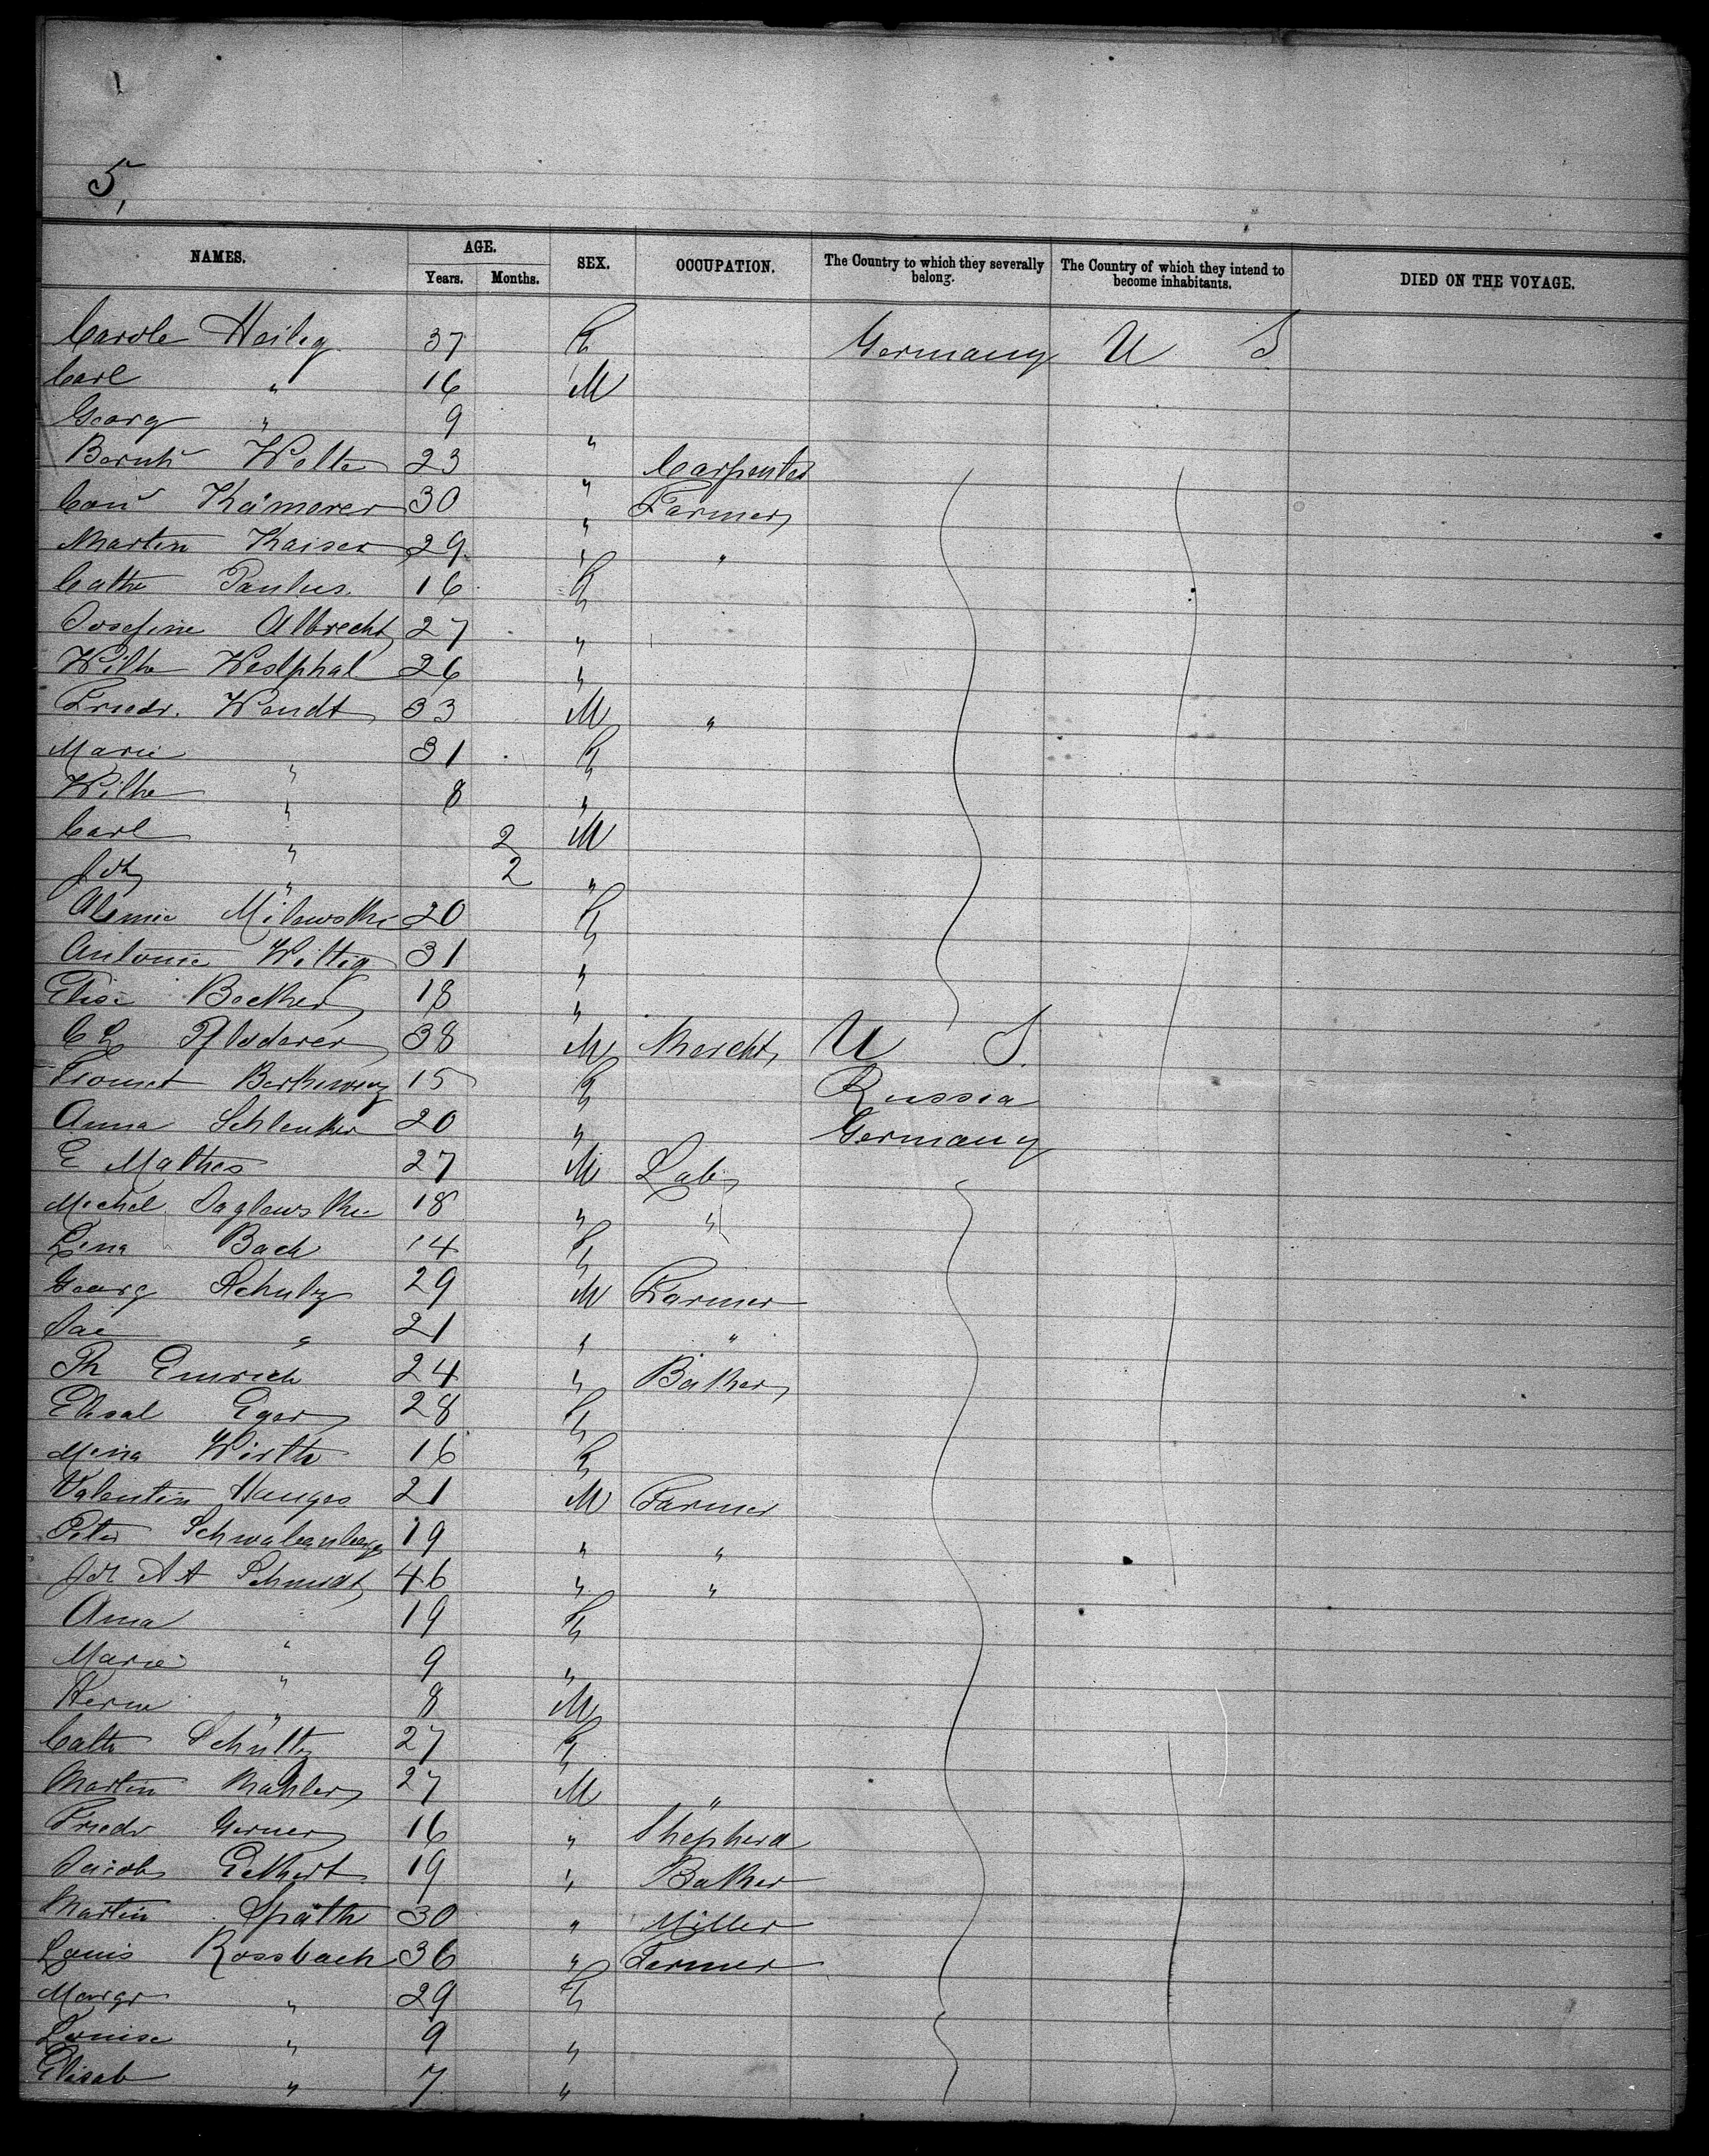 5,
NAMES. AGE. SEX. OCCUPATION. The Country to which they severally belong. The Country of which they intend to become inhabitants. DIED ON THE VOYAGE.
Years. Months.
Carole Heilig 37 F Germany U S
Carl " 16 M
Georg " 9 "
Bernh Wolte 23 " Carpenter
Con Kämerer 30 " Farmer
Martin Kaiser 29 " "
Cath Paulus 16 F
Josefine Albrecht 27 "
Wilh Westphal 26 "
Friedr. Wendt 33 M "
Marie " 31 F
Wilhe " 8 "
Carl " 2 M
Joh " 2 "
Milewski 20 F
Antonie Wittig 31 "
Elise Becker 18 "
C F Pfledderer 38 M Mercht U S.
15 F Russia
Anna Schlenker 20 " Germany
E Mathes 27 M Lab
Michel 18 " "
Lina Bach 14 F
Georg Schulz 29 M Farmer
Jac " 21 " "
Ph Emrich 24 " Baker
Elisab Eger 28 F
Mina Wirth 16 F
Valentin Hauges 21 M Farmer
Peter Schwabenberg 19 " "
Joh Schmidt 46 " "
Anna " 19 F
Marie " 9 "
Herm " 8 M
Cath Schultz 27 F
Martin Mahler 27 M "
Friedr Gerner 16 " Shepherd
Jacob Eckhert 19 " Baker
Martin Späth 30 " Miller
Louis Rossbach 36 " Farmer
Margr " 29 F
Louise " 9 "
Elisab " 7 "